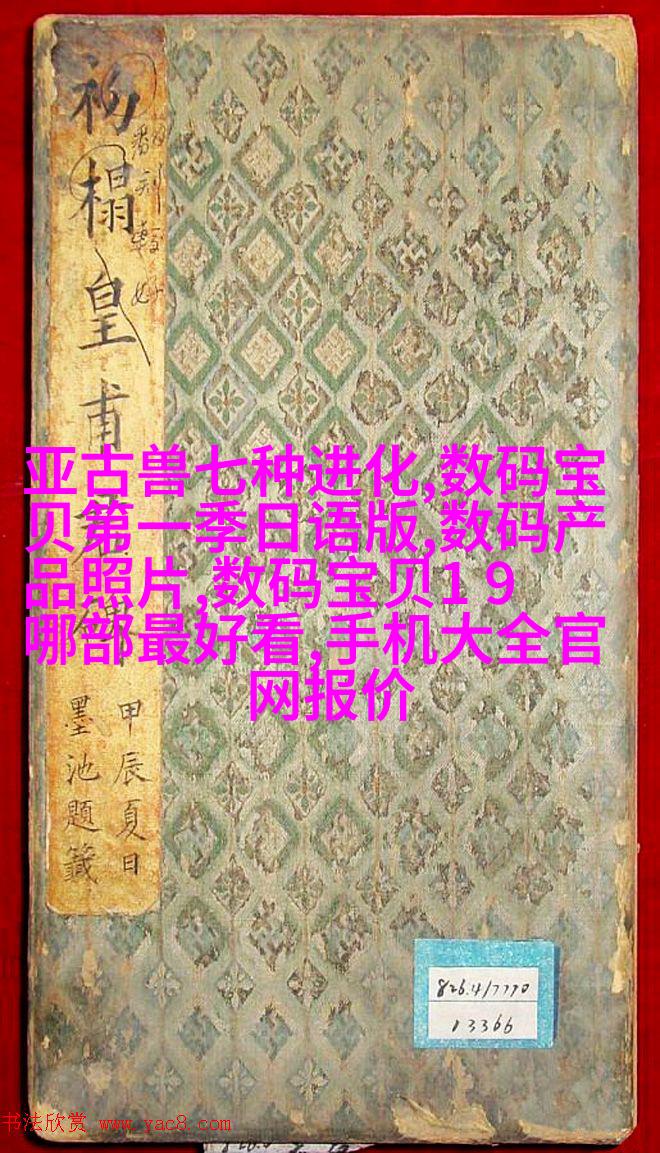 初榻皇甫君碑
甲辰夏日
墨池題籤
亚古兽七种进化,数码宝
贝第一季日语版,数码产
品照片,数码宝贝1９
哪部最好看,手机大全官
网报价
826.4/7770
13366
书法欣赏 www.yac8.com